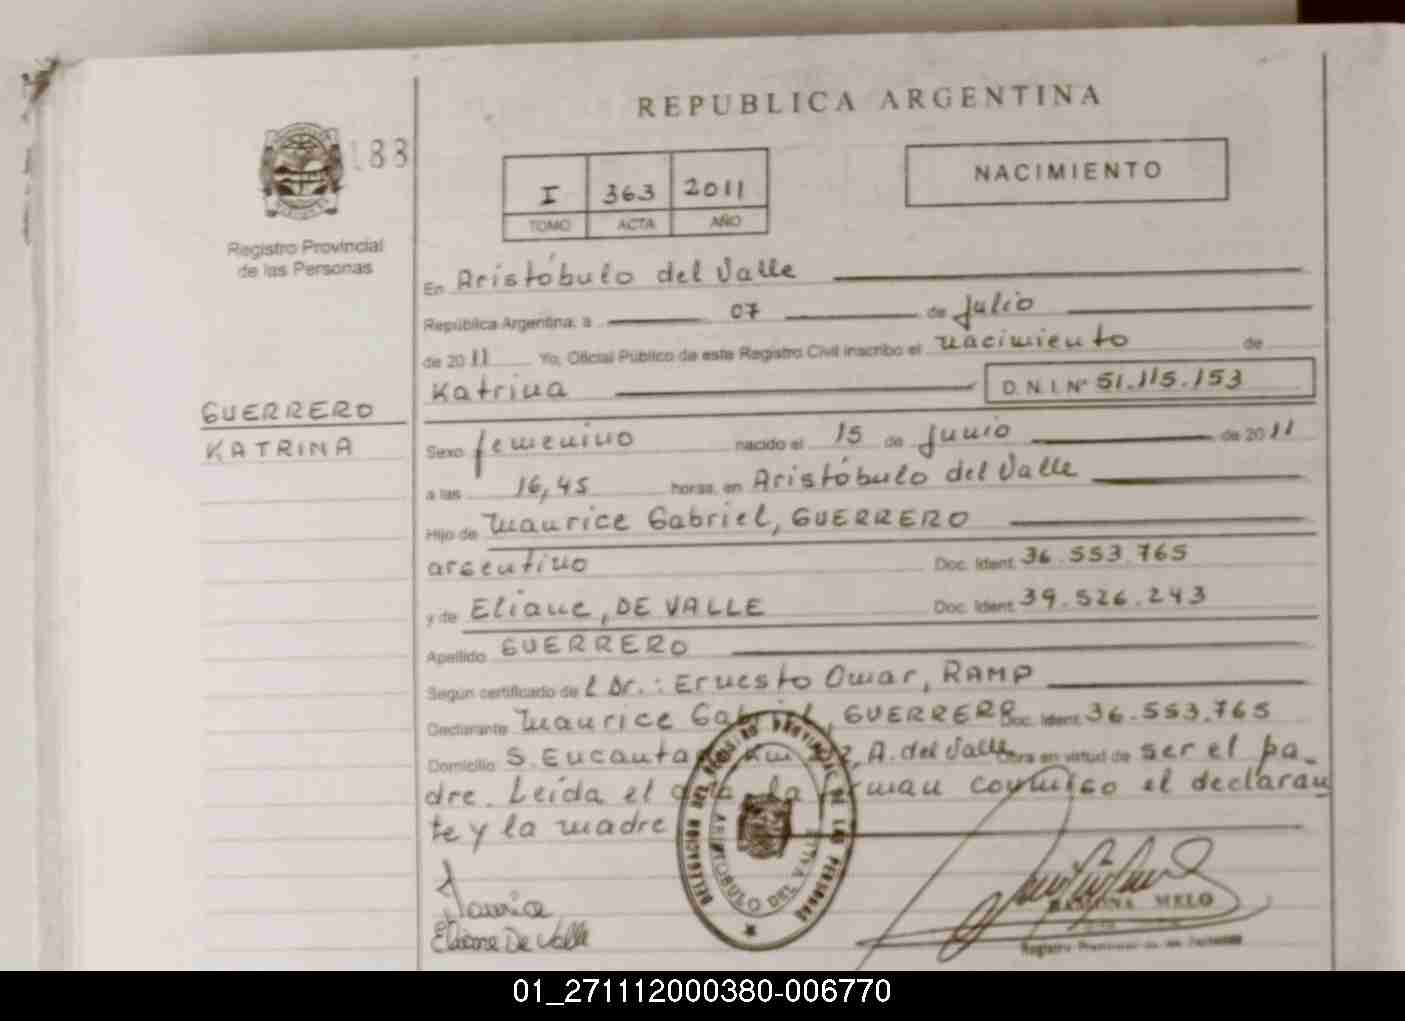 REPUBLICA ARGENTINA
188
I 363 2011
TOMO ACTA AÑO
NACIMIENTO
Registro Provincial
de las Personas
En Aristóbulo del Valle
República Argentina, a 07 de Julio
de 2011 Yo, Oficial Público de este Registro Civil inscribo el nacimiento de
Katrina D.N.I. Nº 51.115.153
GUERRERO
KATRINA
Sexo femenino nacido el 15 de Junio de 2011
a las 16,45 horas, en Aristóbulo del Valle
Hijo de Maurice Gabriel, GUERRERO
argentino Doc. Ident. 36.553.765
y de Eliane, DE VALLE Doc. Ident. 39.526.243
Apellido GUERRERO
Según certificado de l Dr.: Ernesto Omar, RAMP
Declarante Maurice Gabriel, GUERRERO Doc. Ident. 36.553.765
Domicilio S. Encantado Km , A. del Valle Obra en virtud de ser el pa-
dre. Leída el acta la firman conmigo el declaran
te y la madre
DELEGACION DEL REGISTRO PROVINCIAL DE LAS PERSONAS
ARISTOBULO DEL VALLE
Eliane De Valle
RAMONA MELO
Registro Provincial de las Personas
01_271112000380-006770